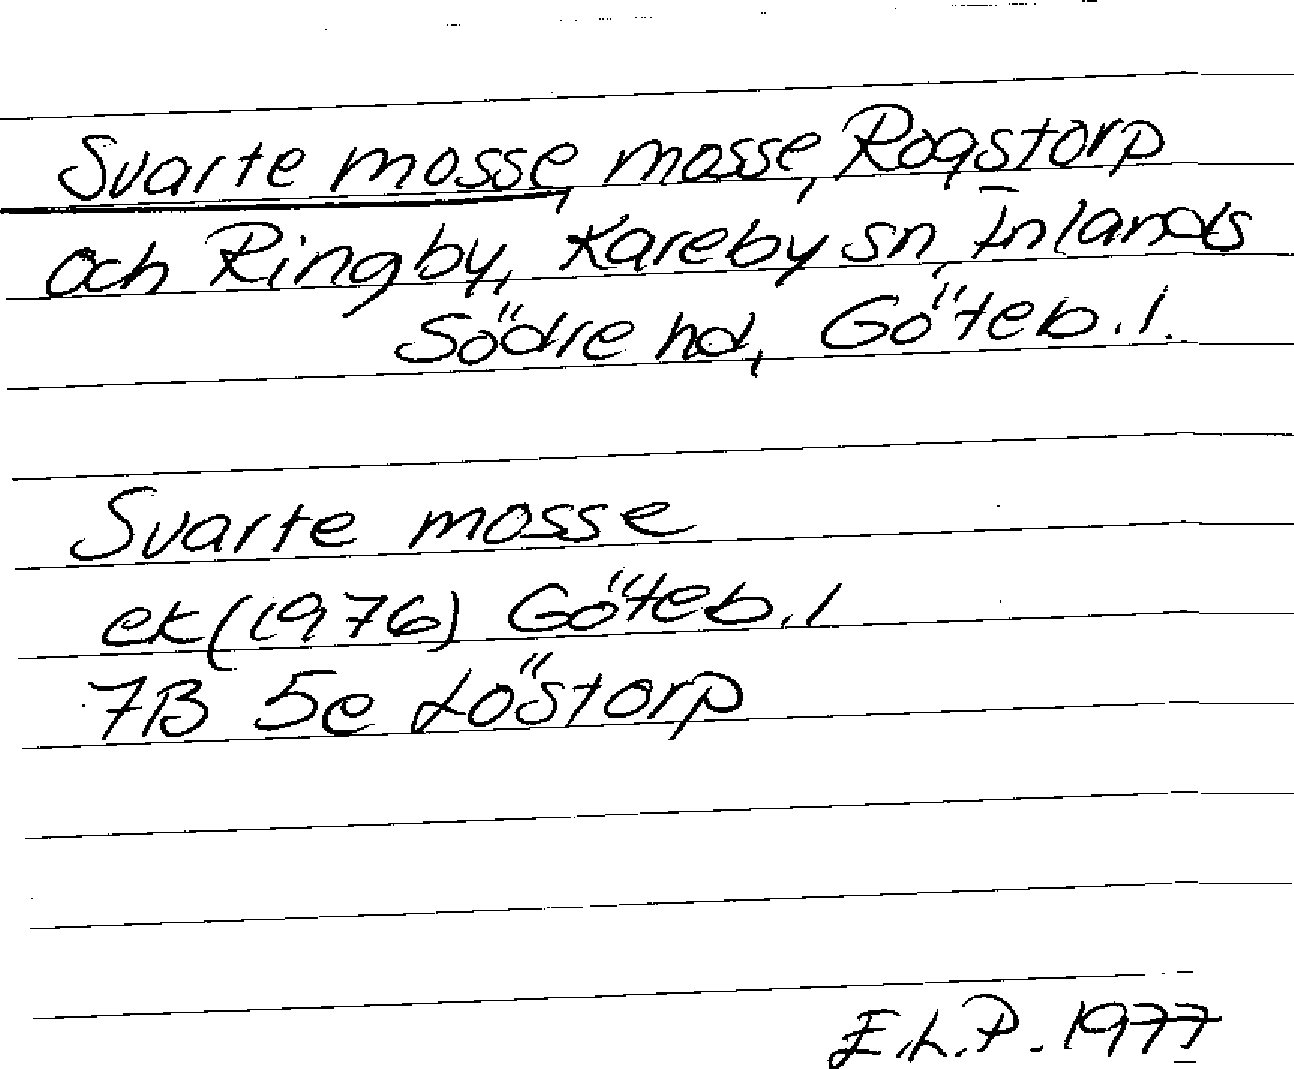 Svarte mosse, mosse, Rogstorp
och Ringby, Kareby sn, Inlands
Södre hd, Göteb. l.
Svarte mosse
ek (1976) Göteb. l
7B 5e Löstorp
E.L.P. 1977